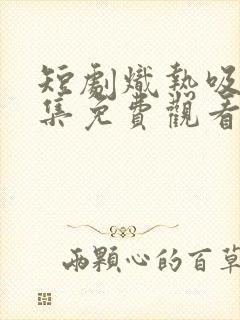 短劇熾熱吸
集免費觀看
兩顆心的百草